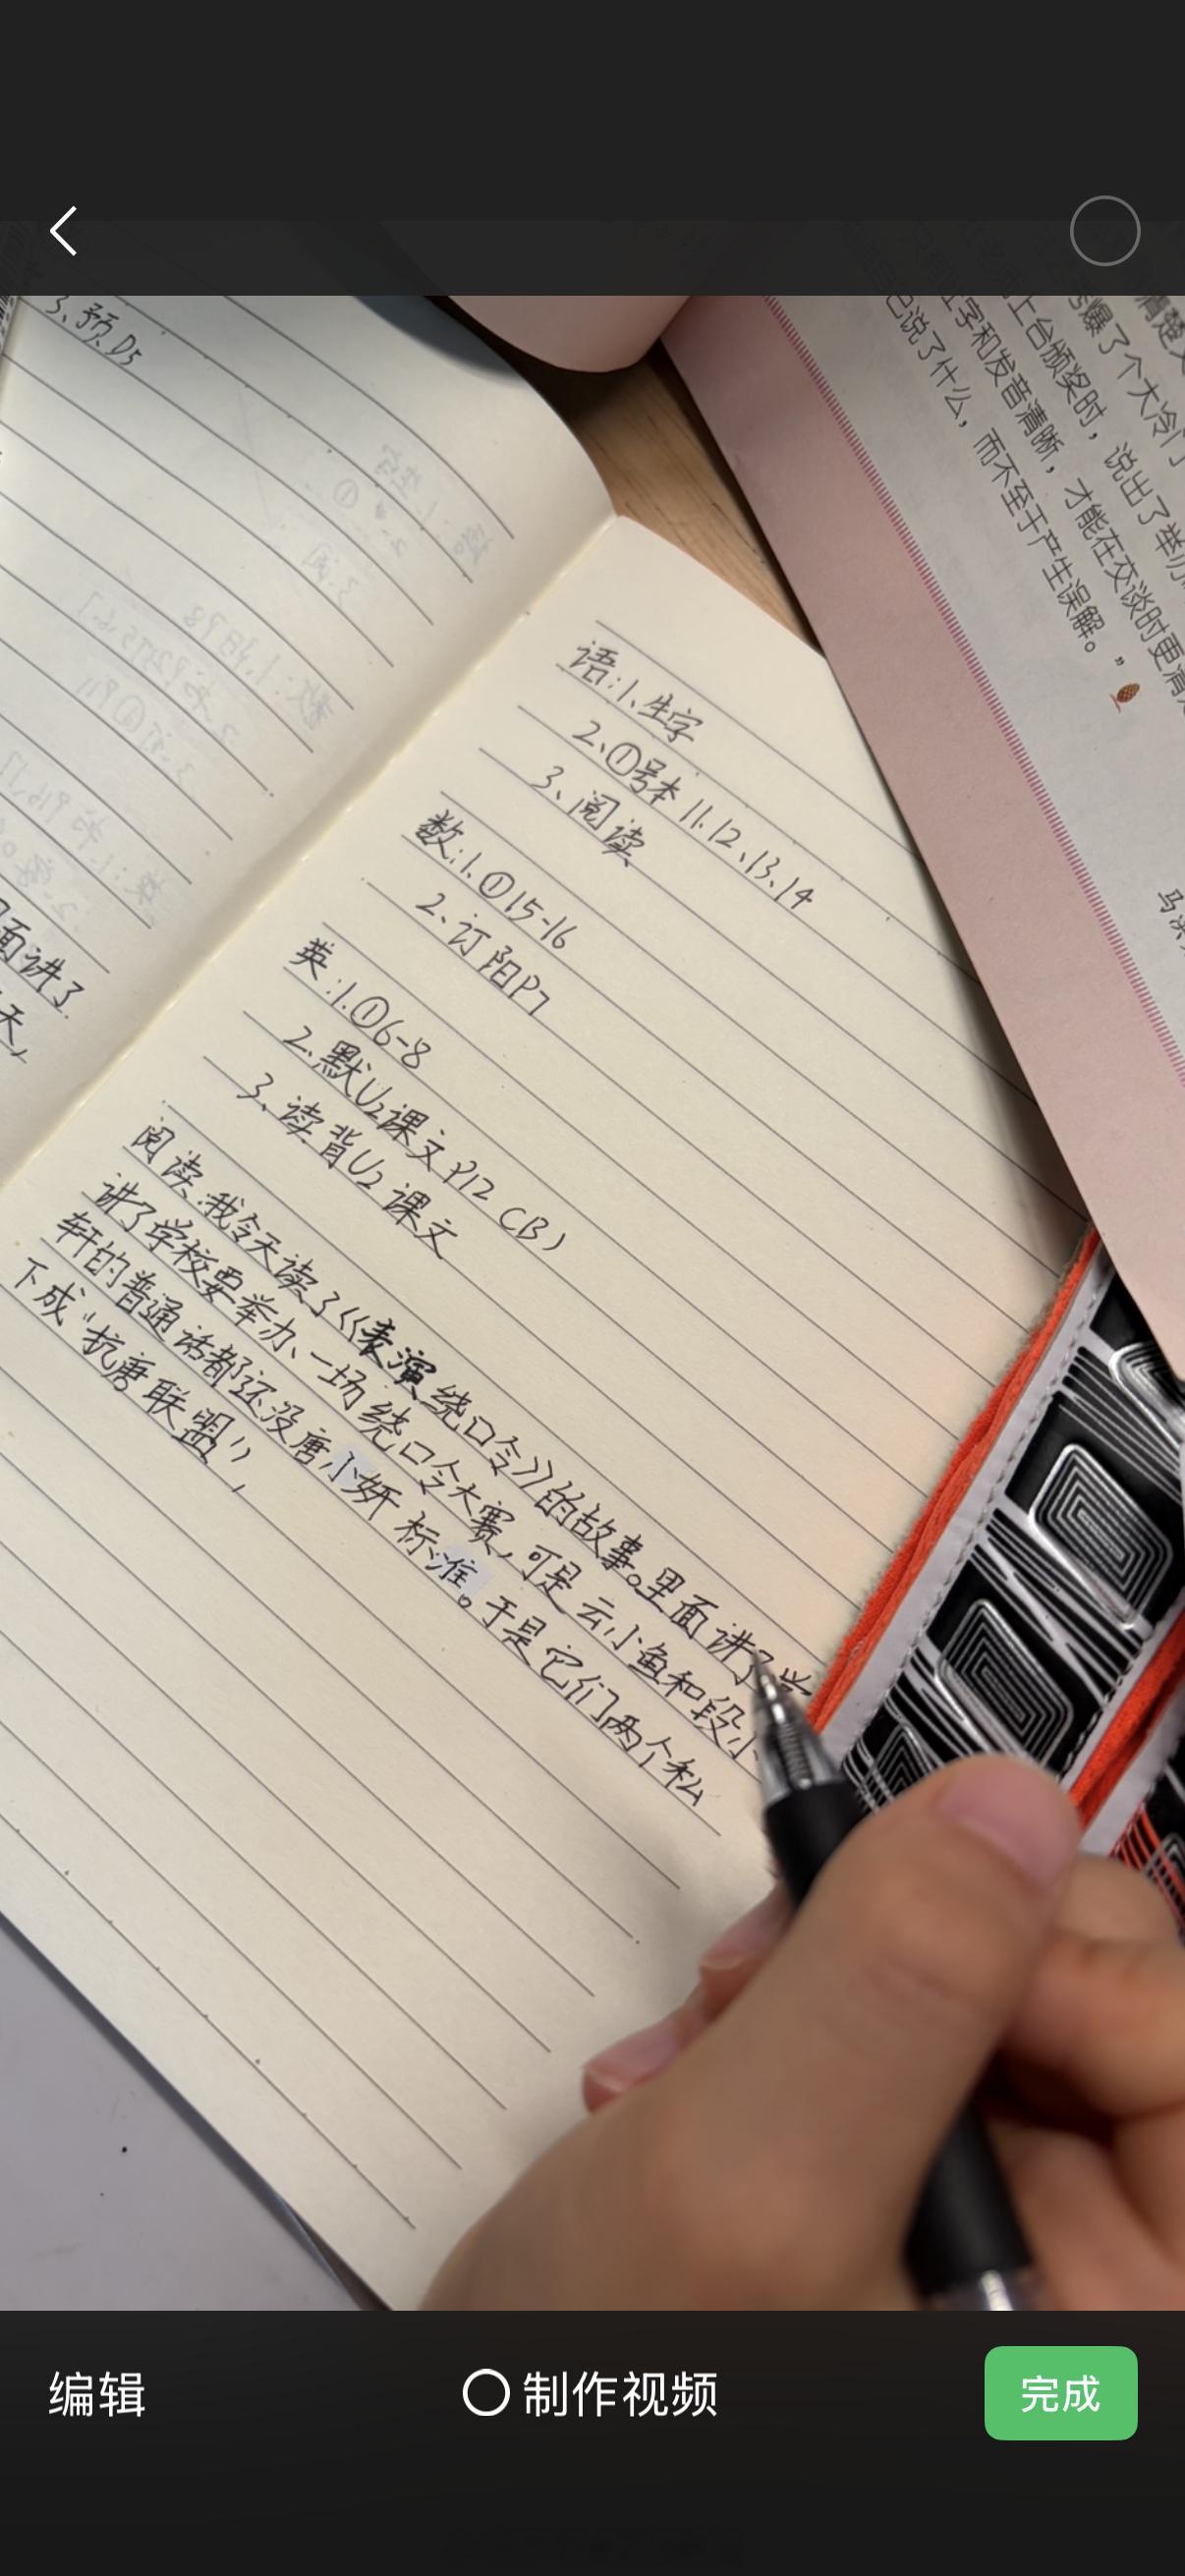 3、预.D5
面讲了
天,
语:1、生字
2、①号本 11.12、13、14
3、阅读
数:1.①15-16
2、订阳P7
英:1.①6-8
2.默U2课文P12 (B)
3、读背U2课文
阅读.我今天读了《表演绕口令》的故事。里面讲了学
讲了学校要举办、一场绕口令大赛,可是云小鱼和段小
轩的普通话都还没唐小妍标准。于是它们两个私
下成“抗唐联盟”,
清楚
爆了个大冷门
上台颁奖时,说出了举办
字和发音清晰,才能在交谈时更清
己说了什么,而不至于产生误解。”
编辑
制作视频
完成